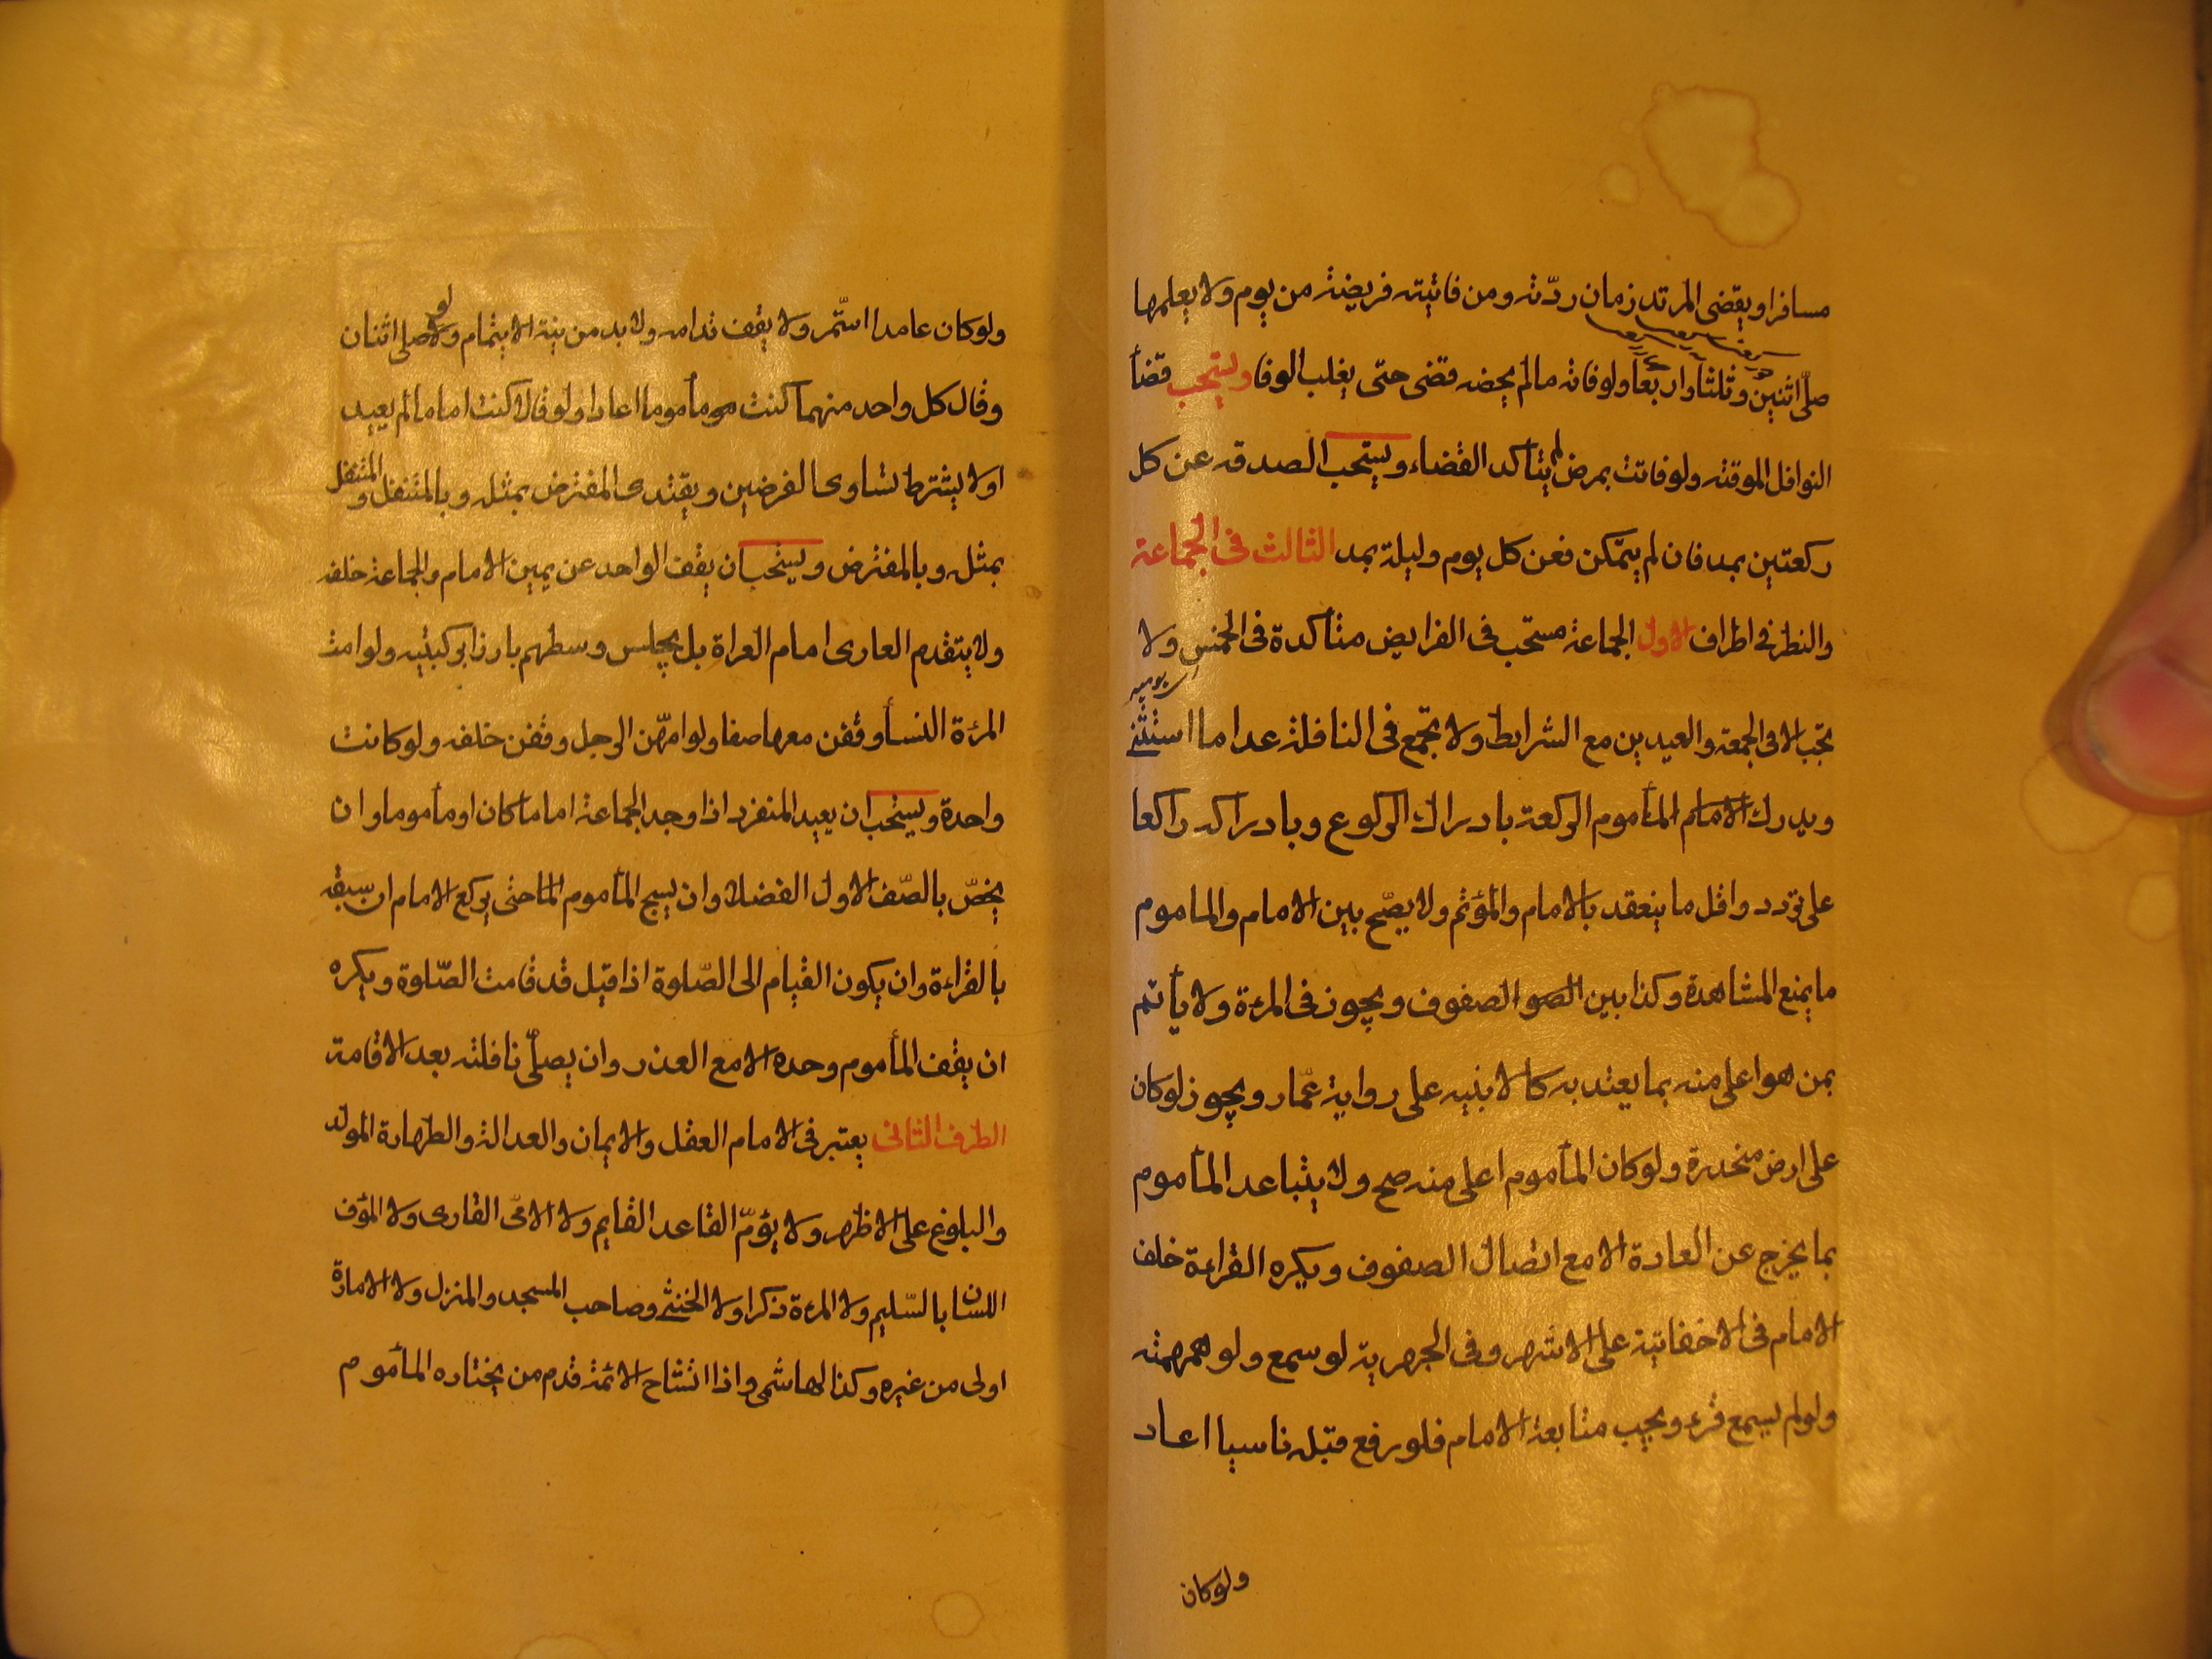 مسافرا ويقضى المرتد زمان ردّته ومن فاتيته فريضة من يوم ولا يعلمها
صلّى اثنين وثلثا واربعا ولو فاته مالم يحصه قضى حتّى يغلب الوفا ويستحب قضأ
النوافل الموقته ولو فاتت بمرض لم يتأكد القضاء ويستحب الصدقه عن كل
ركعتين بمد فان لم يتمكن فعن كل يوم وليلة بمد الثالث فى الجماعة
والنظر فى اطراف الاول الجماعة مستحب فى الفرايض متأكدة فى الخمس ولا
يوميه
تجب الا فى الجمعة والعيدين مع الشرايط ولا تجمع فى النافلة عدا ما استثنى
ويدرك الامام المأموم الركعة بادراك الركوع وبادراكه راكعا
على تردد واقل ما ينعقد بالامام والمؤتم ولا يصّح بين الامام والماموم
ما يمنع المشاهدة وكذا بين الصو الصفوف ويجوز فى المرءة ولا يأتم
بمن هو اعلى منه بما يعتد به كالابنيه على رواية عمّار ويجوز لو كان
على ارض منحدرة ولو كان المأموم اعلى منه صح ولا يتباعد المأموم
بما يخرج عن العادة الا مع اتصال الصفوف ويكره القراءة خلف
الامام فى الاخفاتية على الاشهر وفى الجهرية لو سمع ولو همهمته
ولو لم يسمع قرء ويجب متابعة الامام فلو رفع قبله ناسيا اعاد
ولوكان
ولو كان عامدا استمّر ولا يقف قدامه ولا بد من نية الايتمام ولو صلى اثنان
وقال كل واحد منهما كنت مو مأموما اعادا ولو قالا كنت اماما لم يعيد
اولا يشترط تساوى الفرضين ويقتدى المفترض بمثله وبالمتنفل والمتنفل
بمثله وبالمفترض ويستحب ان يقف الواحد عن يمين الامام والجماعة خلفه
ولا يتقدم العارى امام العراة بل يجلس وسطهم بارزا بركبتيه ولو امت
المرءة النسأ وقفن معها صفا ولو امهّن الرجل وقفن خلفه ولو كانت
واحدة ويستحب ان يعيد المنفرد اذا وجد الجماعة اماما كان او مأموما وان
يخصّ بالصّف الاول الفضلا وان يسبح المأموم الماحتى يركع الامام ان سبقه
بالقراءة وان يكون القيام الى الصّلوة اذا قيل قد قامت الصّلوة ويكره
ان يقف المأموم وحده الا مع العذر وان يصلّى نافلته بعد الاقامة
الطرف الثانى يعتبر فى الامام العقل والايمان والعدالة والطهارة المولد
والبلوغ على الاظهر ولا يؤمّ القاعد القايم ولا الامّى القارى ولا المؤف
اللسان بالسّليم ولا المرءة ذكرا ولا الخنثى وصاحب المسجد والمنزل ولا الامارة
اولى من غيره وكذا الهاشمى واذا اتشاح الائمة قدم من يختاره المأموم